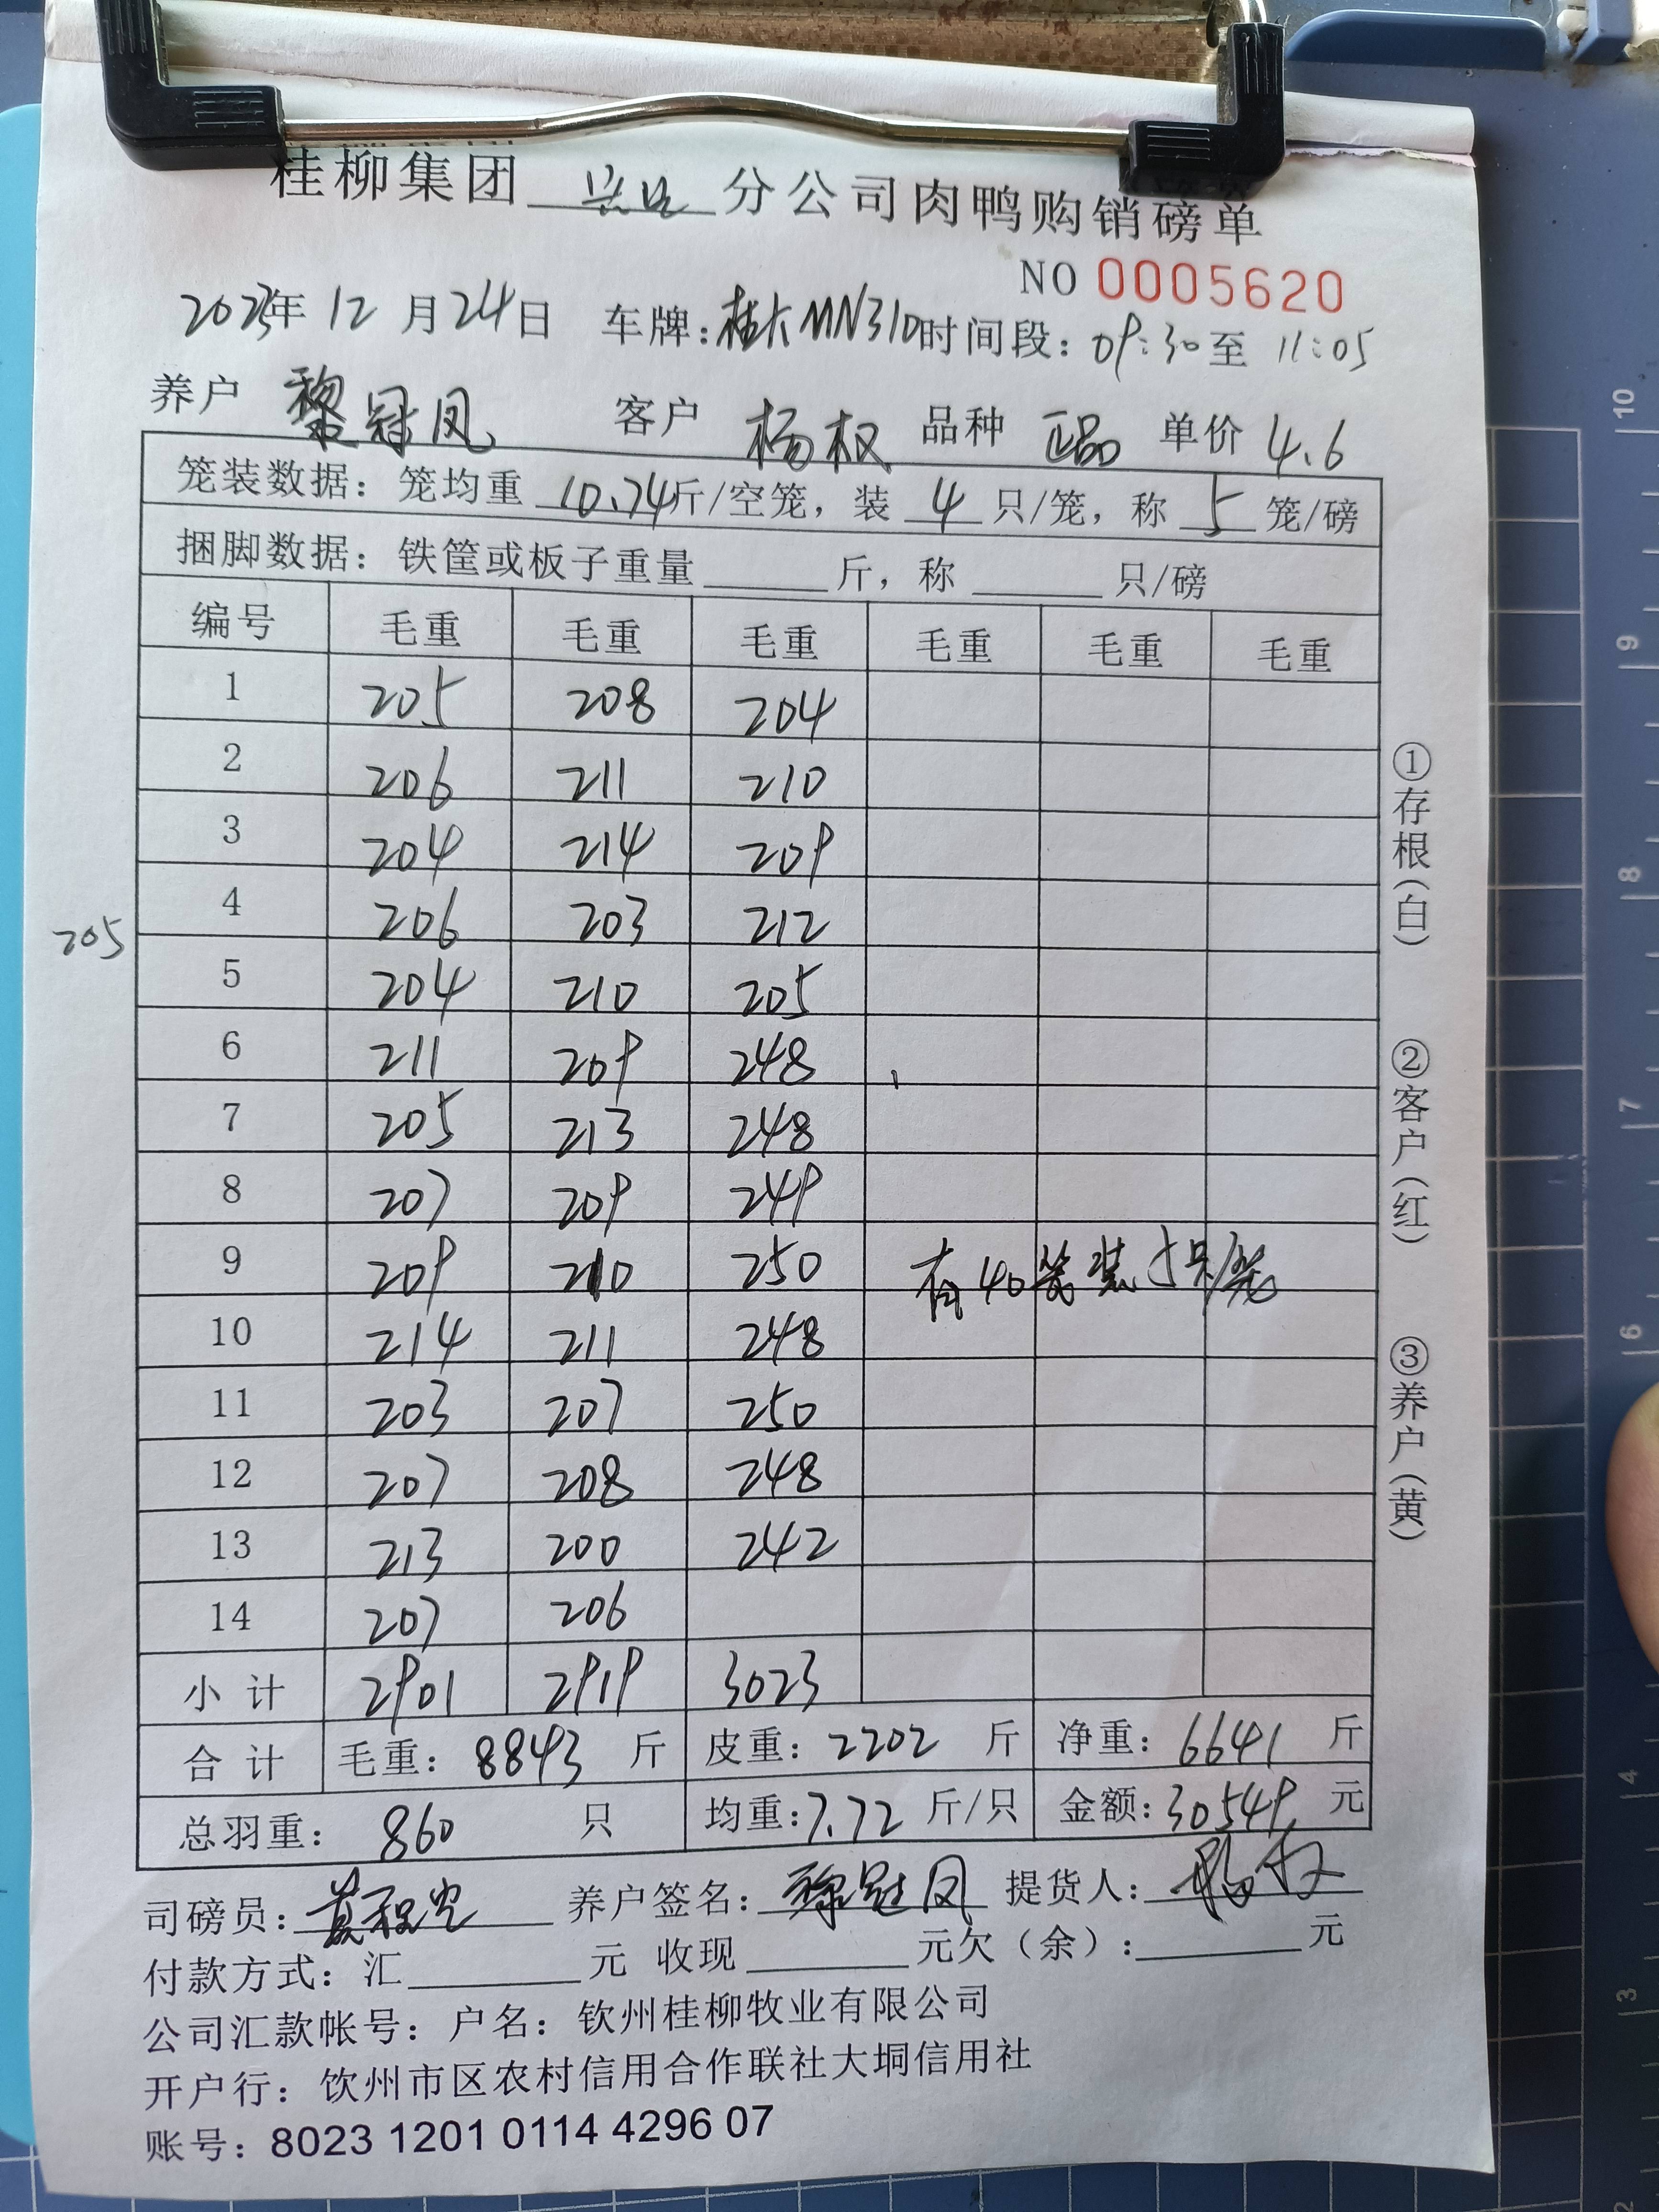 桂柳集团 分公司肉鸭购销磅单
NO 0005620
2023年 12 月 24 日 车牌: 桂 MN310 时间段: 09:30 至 11:05
养户 黎冠凤 客户 杨权 品种 正品 单价 4.6
笼装数据: 笼均重 10.74 斤/空笼, 装 4 只/笼, 称 5 笼/磅
捆脚数据: 铁筐或板子重量____斤, 称____只/磅
编号 毛重 毛重 毛重 毛重 毛重 毛重
1 205 208 204
2 206 211 210
3 204 214 209
4 206 203 212
205
5 204 210 205
6 211 209 248
7 205 213 248
8 207 209 249
9 209 210 250 有40笼装5只/笼
10 214 211 248
11 203 207 250
12 207 208 248
13 213 200 242
14 207 206
小计 2901 2919 3023
合计 毛重: 8843 斤 皮重: 2202 斤 净重: 6641 斤
总羽重: 860 只 均重: 7.72 斤/只 金额: 30549 元
司磅员: 养户签名: 黎冠凤 提货人: 杨权
付款方式: 汇____元 收现____元欠(余):____元
公司汇款帐号: 户名: 钦州桂柳牧业有限公司
开户行: 饮州市区农村信用合作联社大垌信用社
账号: 8023 1201 0114 4296 07
①存根(白)
②客户(红)
③养户(黄)
10
9
8
7
6
4
3
2